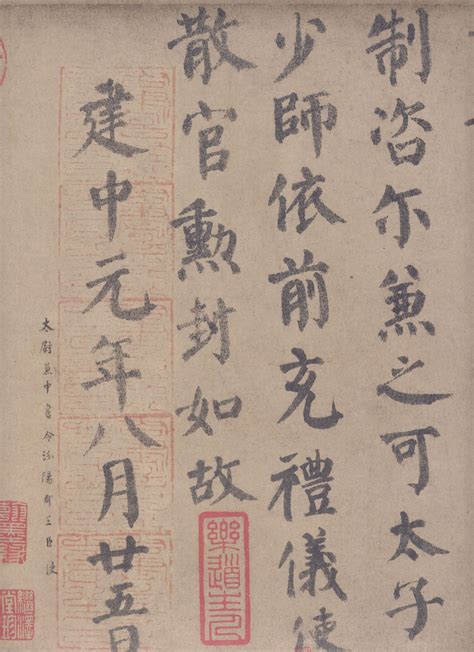 制咨尔兼之可太子
少師依前充禮儀使
散官勳封如故
樂道主人
建中元年八月廿五日
太尉兼中書令汾陽郡王臣使